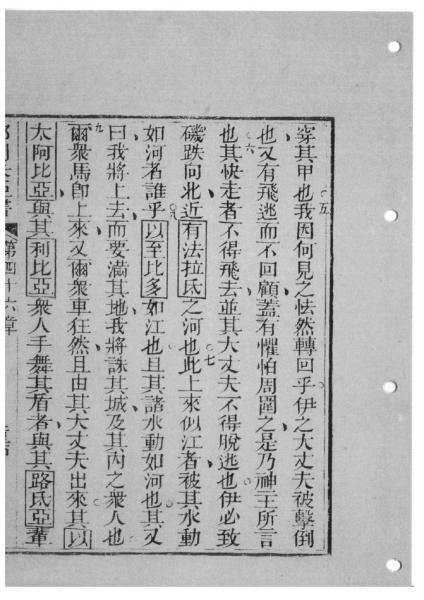 穿其甲也我因何見之怯然轉回乎伊之大丈夫被擊倒
也又有飛逃而不回顧蓋有懼怕周圍之是乃神主所言
也其快走者不得飛去並其大丈夫不得脫逃也伊必致
磯跌向北近有法拉氐之河也此上來似江者被其水動
如河者誰乎以至比多如江也且其諸水動如河也其又
曰我將上去而要滿其地我將誅其城及其內之衆人也
爾衆馬卽上來又爾衆車狂然且由其大丈夫出來其以
太阿比亞與其利比亞衆人手舞其盾者與其路氐亞輩
第四十六章
五
六
七
八
九